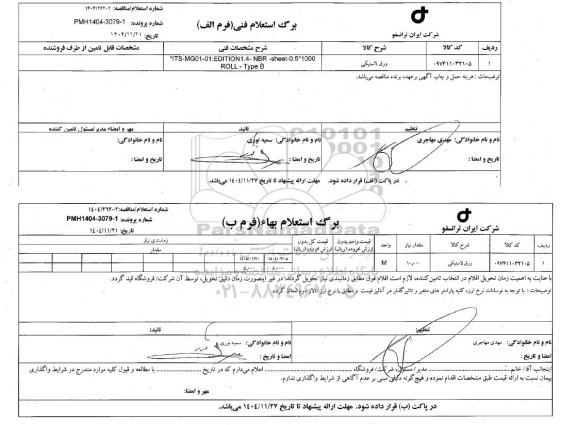 شماره استعلام/مناقصه: ۱۴۰۴/۲۶۲-۲
شماره پرونده: PMH1404-3079-1
تاریخ: ۱۴۰۴/۱۱/۲۱
برگ استعلام فنی(فرم الف)
شرکت ایران ترانسفو
ردیف کد کالا شرح کالا شرح مشخصات فنی مشخصات قابل تامین از طرف فروشنده
۱ ۰۹۷۴۱۱۰۳۲۱۰۵ ورق لاستیکی "ITS-MG01-01:EDITION1.4- NBR -sheet-0.5*1000
ROLL - Type B
توضیحات : هزینه حمل و چاپ آگهی برعهده برنده مناقصه می‌باشد.
تنظیم تائید مهر و امضاء مدیر/مسئول تامین کننده
نام و نام خانوادگی: مهدی مهاجری نام و نام خانوادگی: سمیه نوری نام و نام خانوادگی:
تاریخ و امضا : تاریخ و امضا : تاریخ و امضا :
در پاکت (الف) قرار داده شود. مهلت ارائه پیشنهاد تا تاریخ ۱۴۰۴/۱۱/۲۷ می‌باشد.
شماره پرونده: PMH1404-3079-1
تاریخ: ۱۴۰۴/۱۱/۲۱
برگ استعلام بهاء(فرم ب)
شرکت ایران ترانسفو
ParsNamadData
۰۲۱-۸۸۳۴۹۶۷۰
ردیف کد کالا شرح کالا مقدار نیاز واحد قیمت واحد بدون ارزش افزوده(ریال) قیمت کل بدون ارزش افزوده(ریال) زمانبندی نیاز
۱ ۰۹۷۴۱۱۰۳۲۱۰۵ ورق لاستیکی M
با عنایت به اهمیت زمان تحویل اقلام در انتخاب تامین‌کننده، لازم است اقلام فوق مطابق زمانبندی نیاز تحویل گردند، در اینصورت زمان دقیق تحویل، توسط آن شرکت/ فروشگاه قید گردد.
تنظیم: تائید:
نام و نام خانوادگی: مهدی مهاجری نام و نام خانوادگی: سمیه نوری
امضا و تاریخ : امضا و تاریخ :
اینجانب آقا/ خانم مدیر/ مسئول شرکت/ فروشگاه اعلام می‌دارم که در تاریخ با مطالعه و قبول کلیه موارد مندرج در شرایط واگذاری
پیمان نسبت به ارائه قیمت طبق مشخصات اقدام نموده و هیچ‌گونه دلیلی مبنی بر عدم آگاهی از شرایط واگذاری ندارم.
مهر و امضا:
در پاکت (ب) قرار داده شود. مهلت ارائه پیشنهاد تا تاریخ ۱۴۰۴/۱۱/۲۷ می‌باشد.